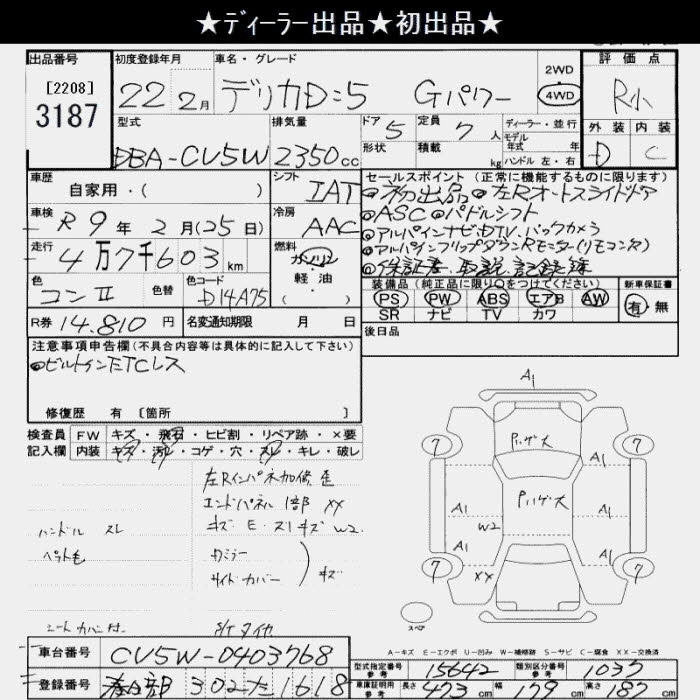 ★ﾃﾞィーラー出品★初出品★
出品番号 初度登録年月 車名・グレード 2WD 評価点
[2208] 3187 22年 2月 デリカD:5 Gパワー 4WD R小
型式 排気量 ドア 5 定員 7人 ディーラー・並行 外装 内装
形状 積載 kg モデル年式 年 ハンドル 左・右
DBA-CV5W 2350cc D C
車歴 自家用・( ) シフト IAT セールスポイント (正常に機能するものに限ります)
●初出品 ●左Rオートスライドドア
車検 R9年 2月(25日) 冷房 AAC ●ASC ●パドルシフト
●アルパインナビ 地DTV.バックカメラ
走行 4万7千603km 燃料 ガソリン 軽油 (・) ●アルパインフリップダウンRモニター(リモコン欠)
●保証書・取説・記録簿
色 コンⅡ 色替 色コード D14A75 装備品 (純正品に限り○をつけてください) 新車保証書
PS PW ABS エアB AW 有・無
SR ナビ TV カワ
R券 14.810円 名変通知期限 月 日 後日品
注意事項申告欄(不具合内容等は具体的に記入して下さい)
●ビルトインETCレス
修復歴 有 [箇所 ]
検査員 FW キズ・飛石・ヒビ割・リペア跡・×要
記入欄 内装 キズ・汚レ・コゲ・穴・スレ・キレ・破レ
左Rインパネ加修 歪
エンドパネル 1部 XX
ハンドル スレ キズ E・スリキズ W2
ペット毛 Dミラー
サイドカバー キズ
シートカバー付
A1
Pハゲ大
7 7
Pハゲ大
A1 A1
W2
A1 A1
7 XX 7
スペア
A1
A-キズ E-エクボ U-凹み W-補修跡 S-サビ C-腐食 XX-交換済
車台番号 CV5W-0403768 型式指定番号 参考 15642 類別区分番号 参考 1037
登録番号 春日部 302 た 1618 車庫証明用 参考 長さ 473cm 幅 179cm 高さ 187cm